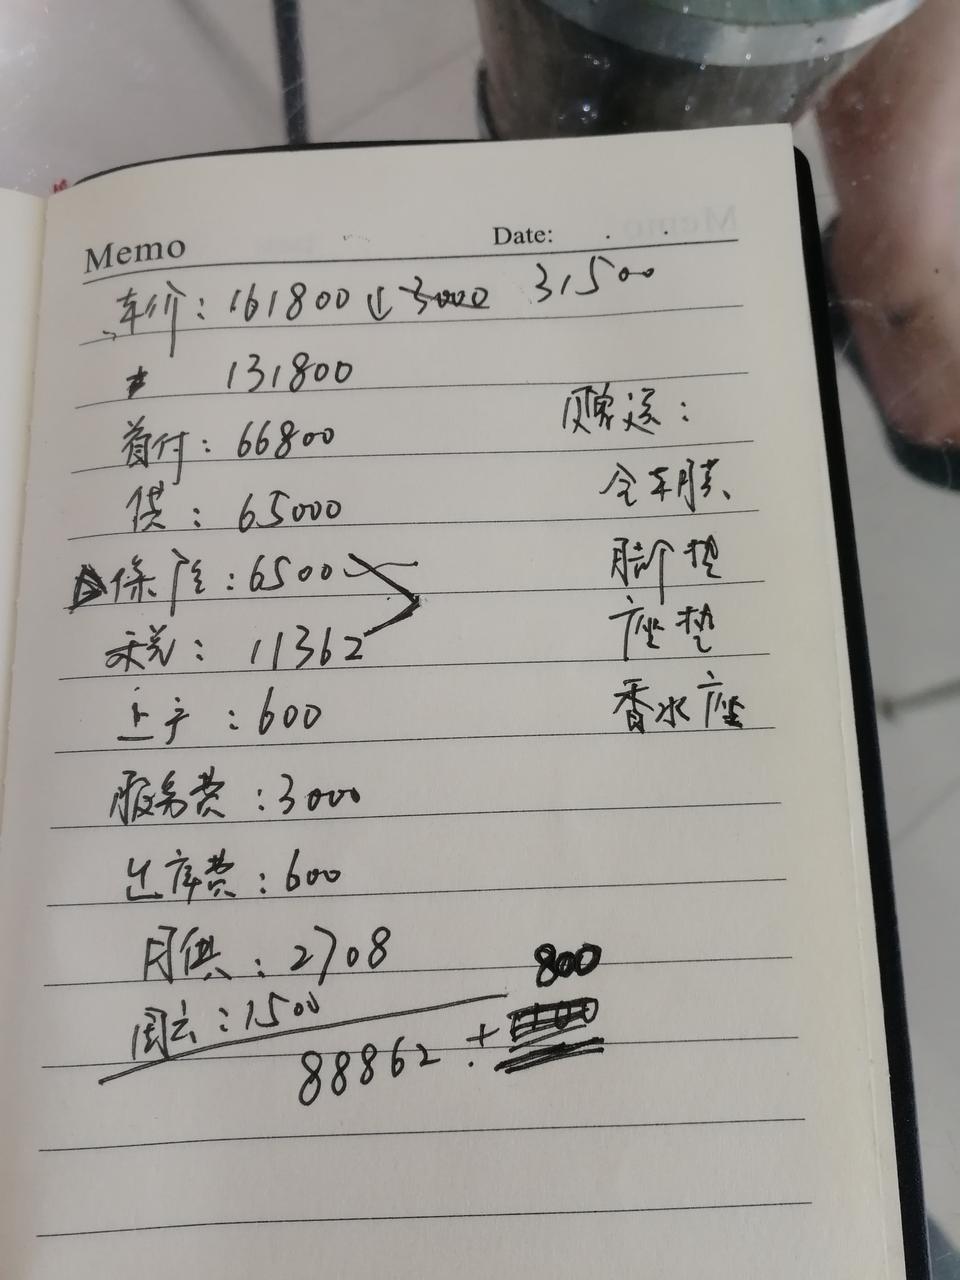 Memo Date: . .
车价：161800 ↓ 3000 31500
131800
首付：66800 赠送：
供：65000 全车膜
保险：6500 脚垫
税：11362 座垫
上户：600 香水座
服务费：3000
出库费：600
月供：2708
800
：1500
88862 +